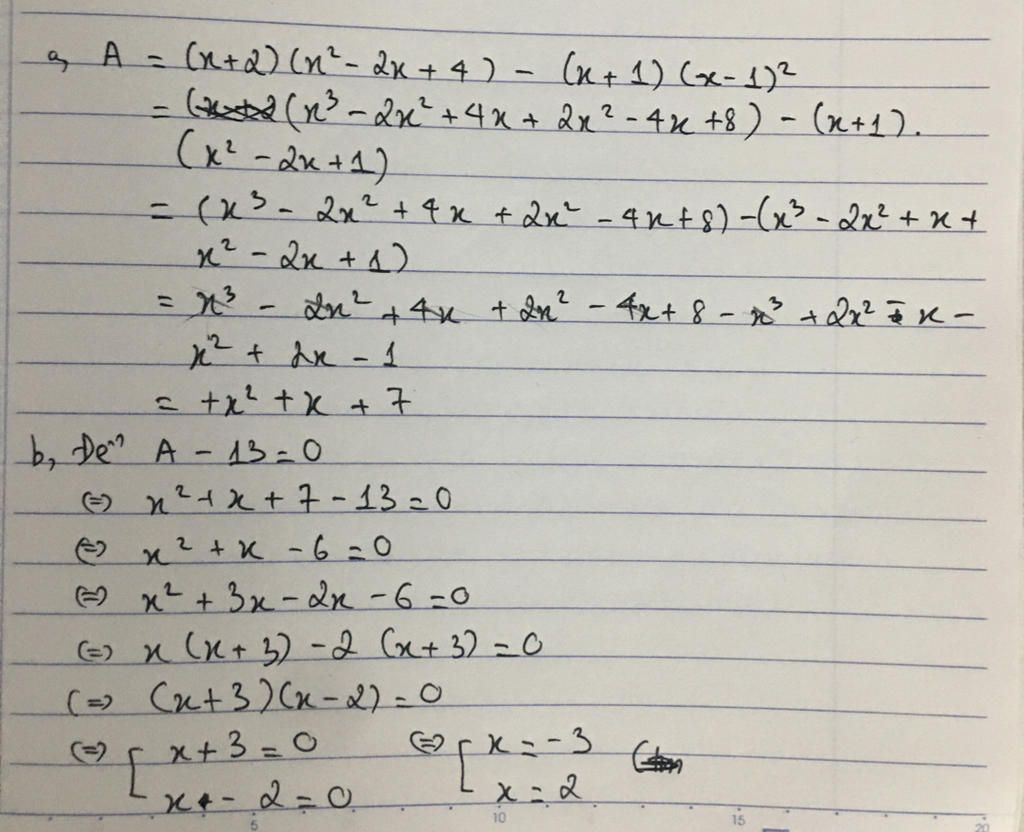 a, A = (x+2)(x² - 2x + 4) - (x+1)(x-1)²
= (x³ - 2x² + 4x + 2x² - 4x + 8) - (x+1).
(x² - 2x + 1)
= (x³ - 2x² + 4x + 2x² - 4x + 8) - (x³ - 2x² + x +
x² - 2x + 1)
= x³ - 2x² + 4x + 2x² - 4x + 8 - x³ + 2x² - x -
x² + 2x - 1
= +x² + x + 7
b, Để A - 13 = 0
(=) x² + x + 7 - 13 = 0
(=) x² + x - 6 = 0
(=) x² + 3x - 2x - 6 = 0
(=) x(x+3) - 2(x+3) = 0
(=) (x+3)(x-2) = 0
(=) [ x+3 = 0 (=) [ x = -3
x - 2 = 0 x = 2
5 10 15 20